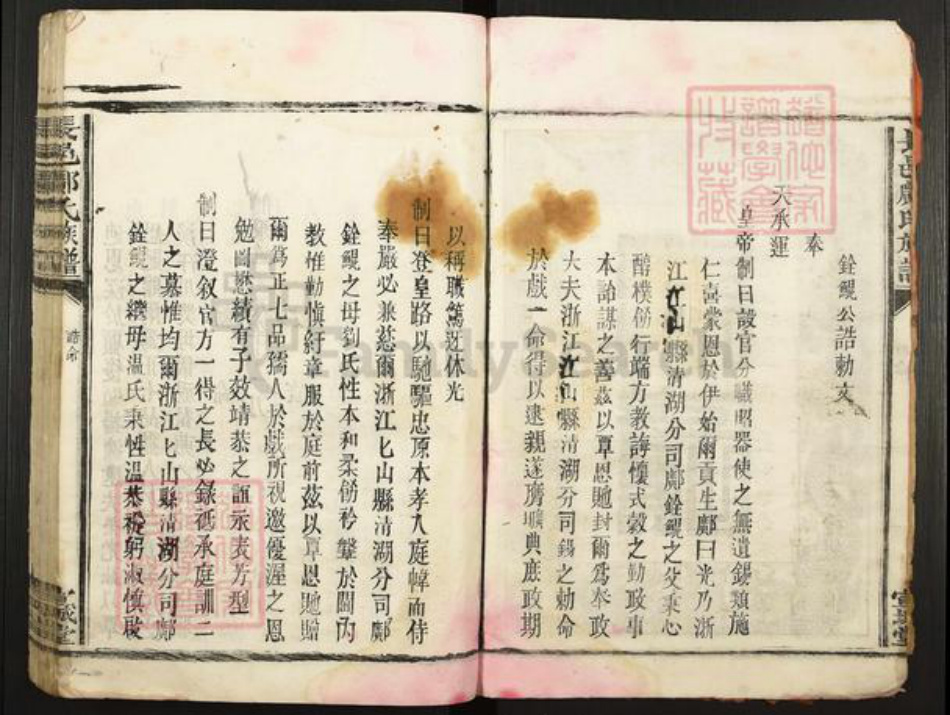 銓鯤公誥勅文
奉
天承運
皇帝制曰設官分職昭器使之無遺錫類施
仁喜蒙恩於伊始爾貢生鄺曰光乃浙
江江山縣清湖分司鄺銓鯤之父秉心
醇樸飭行端方教誨懷式穀之勤政事
本詒謀之善茲以覃恩貤封爾為奉政
大夫浙江江山縣清湖分司錫之勅命
於戲一命得以逮親遂膺曠典庶政期
以稱職篤迓休光
制曰登皇路以馳驅忠原本孝入庭幃而侍
奉嚴必兼慈爾浙江匕山縣清湖分司鄺
銓鯤之母劉氏性本和柔飭衿鞶於閫內
教惟勤慎紆章服於庭前茲以覃恩貤贈
爾為正七品孺人於戲所視邀優渥之恩
勉圖懋績有子效靖恭之誼永表芳型
制曰澄叙官方一得之長必錄祗承庭訓二
人之慕惟均爾浙江匕山縣清湖分司鄺
銓鯤之繼母溫氏秉性溫恭褆躬淑慎晸
長邑鄺氏族譜
誥命